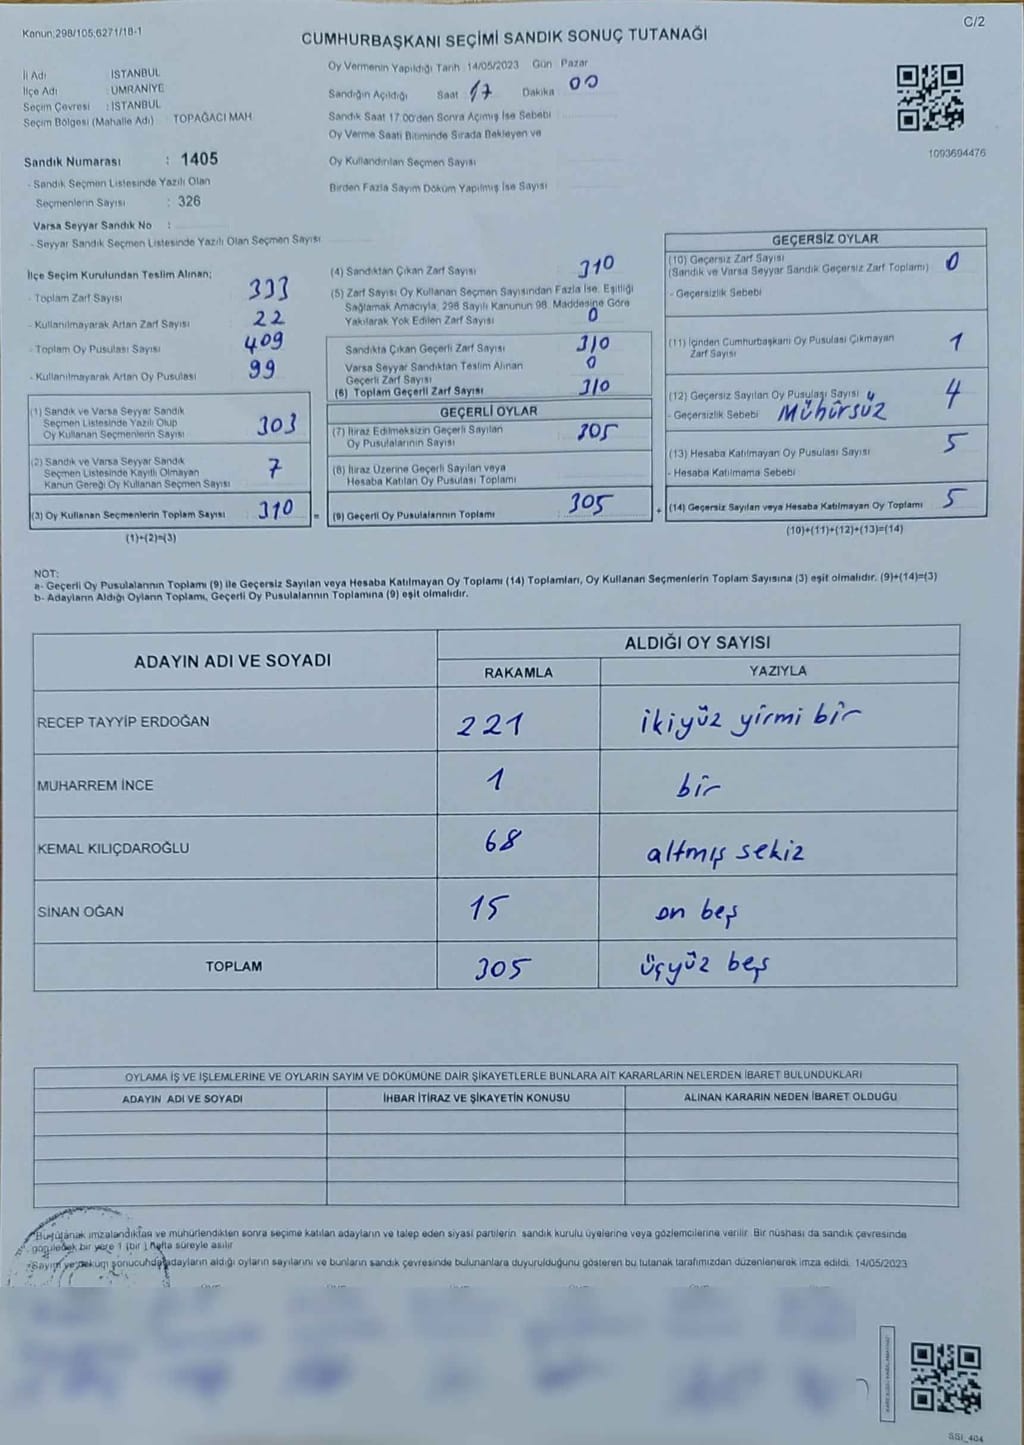 Kanun;298/105;6271/18-1
C/2
CUMHURBAŞKANI SEÇİMİ SANDIK SONUÇ TUTANAĞI
İl Adı : İSTANBUL
İlçe Adı : ÜMRANİYE
Seçim Çevresi : İSTANBUL
Seçim Bölgesi (Mahalle Adı) TOPAĞACI MAH
Oy Vermenin Yapıldığı Tarih :14/05/2023 Gün : Pazar
Sandığın Açıldığı Saat : 17 Dakika : 00
Sandık Saat 17:00'den Sonra Açılmış İse Sebebi :
Oy Verme Saati Bitiminde Sırada Bekleyen ve
Oy Kullandırılan Seçmen Sayısı :
Birden Fazla Sayım Döküm Yapılmış İse Sayısı :
1093694476
Sandık Numarası : 1405
- Sandık Seçmen Listesinde Yazılı Olan
Seçmenlerin Sayısı : 326
Varsa Seyyar Sandık No :
- Seyyar Sandık Seçmen Listesinde Yazılı Olan Seçmen Sayısı :
İlçe Seçim Kurulundan Teslim Alınan;
- Toplam Zarf Sayısı 333
- Kullanılmayarak Artan Zarf Sayısı 22
- Toplam Oy Pusulası Sayısı 409
- Kullanılmayarak Artan Oy Pusulası 99
(1) Sandık ve Varsa Seyyar Sandık
Seçmen Listesinde Yazılı Olup
Oy Kullanan Seçmenlerin Sayısı 303
(2) Sandık ve Varsa Seyyar Sandık
Seçmen Listesinde Kayıtlı Olmayan
Kanun Gereği Oy Kullanan Seçmen Sayısı 7
(3) Oy Kullanan Seçmenlerin Toplam Sayısı 310 =
(1)+(2)=(3)
(4) Sandıktan Çıkan Zarf Sayısı 310
(5) Zarf Sayısı Oy Kullanan Seçmen Sayısından Fazla İse, Eşitliği
Sağlamak Amacıyla, 298 Sayılı Kanunun 98. Maddesine Göre
Yakılarak Yok Edilen Zarf Sayısı 0
Sandıkta Çıkan Geçerli Zarf Sayısı 310
Varsa Seyyar Sandıktan Teslim Alınan
Geçerli Zarf Sayısı 0
(6) Toplam Geçerli Zarf Sayısı 310
GEÇERLİ OYLAR
(7) İtiraz Edilmeksizin Geçerli Sayılan
Oy Pusulalarının Sayısı 305
(8) İtiraz Üzerine Geçerli Sayılan veya
Hesaba Katılan Oy Pusulası Toplamı
(9) Geçerli Oy Pusulalarının Toplamı 305 +
GEÇERSİZ OYLAR
(10) Geçersiz Zarf Sayısı
(Sandık ve Varsa Seyyar Sandık Geçersiz Zarf Toplamı) 0
- Geçersizlik Sebebi
(11) İçinden Cumhurbaşkanı Oy Pusulası Çıkmayan
Zarf Sayısı 1
(12) Geçersiz Sayılan Oy Pusulası Sayısı 4 4
- Geçersizlik Sebebi Mühürsüz
(13) Hesaba Katılmayan Oy Pusulası Sayısı 5
- Hesaba Katılmama Sebebi
(14) Geçersiz Sayılan veya Hesaba Katılmayan Oy Toplamı 5
(10)+(11)+(12)+(13)=(14)
NOT:
a- Geçerli Oy Pusulalarının Toplamı (9) ile Geçersiz Sayılan veya Hesaba Katılmayan Oy Toplamı (14) Toplamları, Oy Kullanan Seçmenlerin Toplam Sayısına (3) eşit olmalıdır. (9)+(14)=(3)
b- Adayların Aldığı Oyların Toplamı, Geçerli Oy Pusulalarının Toplamına (9) eşit olmalıdır.
ADAYIN ADI VE SOYADI
ALDIĞI OY SAYISI
RAKAMLA YAZIYLA
RECEP TAYYİP ERDOĞAN 221 ikiyüz yirmi bir
MUHARREM İNCE 1 bir
KEMAL KILIÇDAROĞLU 68 altmış sekiz
SİNAN OĞAN 15 on beş
TOPLAM 305 üçyüz beş
OYLAMA İŞ VE İŞLEMLERİNE VE OYLARIN SAYIM VE DÖKÜMÜNE DAİR ŞİKAYETLERLE BUNLARA AİT KARARLARIN NELERDEN İBARET BULUNDUKLARI
ADAYIN ADI VE SOYADI İHBAR İTİRAZ VE ŞİKAYETİN KONUSU ALINAN KARARIN NEDEN İBARET OLDUĞU
Bu tutanak imzalandıktan ve mühürlendikten sonra seçime katılan adayların ve talep eden siyasi partilerin sandık kurulu üyelerine veya gözlemcilerine verilir. Bir nüshası da sandık çevresinde
görülecek bir yere 1 (bir ) hafta süreyle asılır
Sayım ve döküm sonucunda adayların aldığı oyların sayılarını ve bunların sandık çevresinde bulunanlara duyurulduğunu gösteren bu tutanak tarafımızdan düzenlenerek imza edildi. 14/05/2023
SSI_404